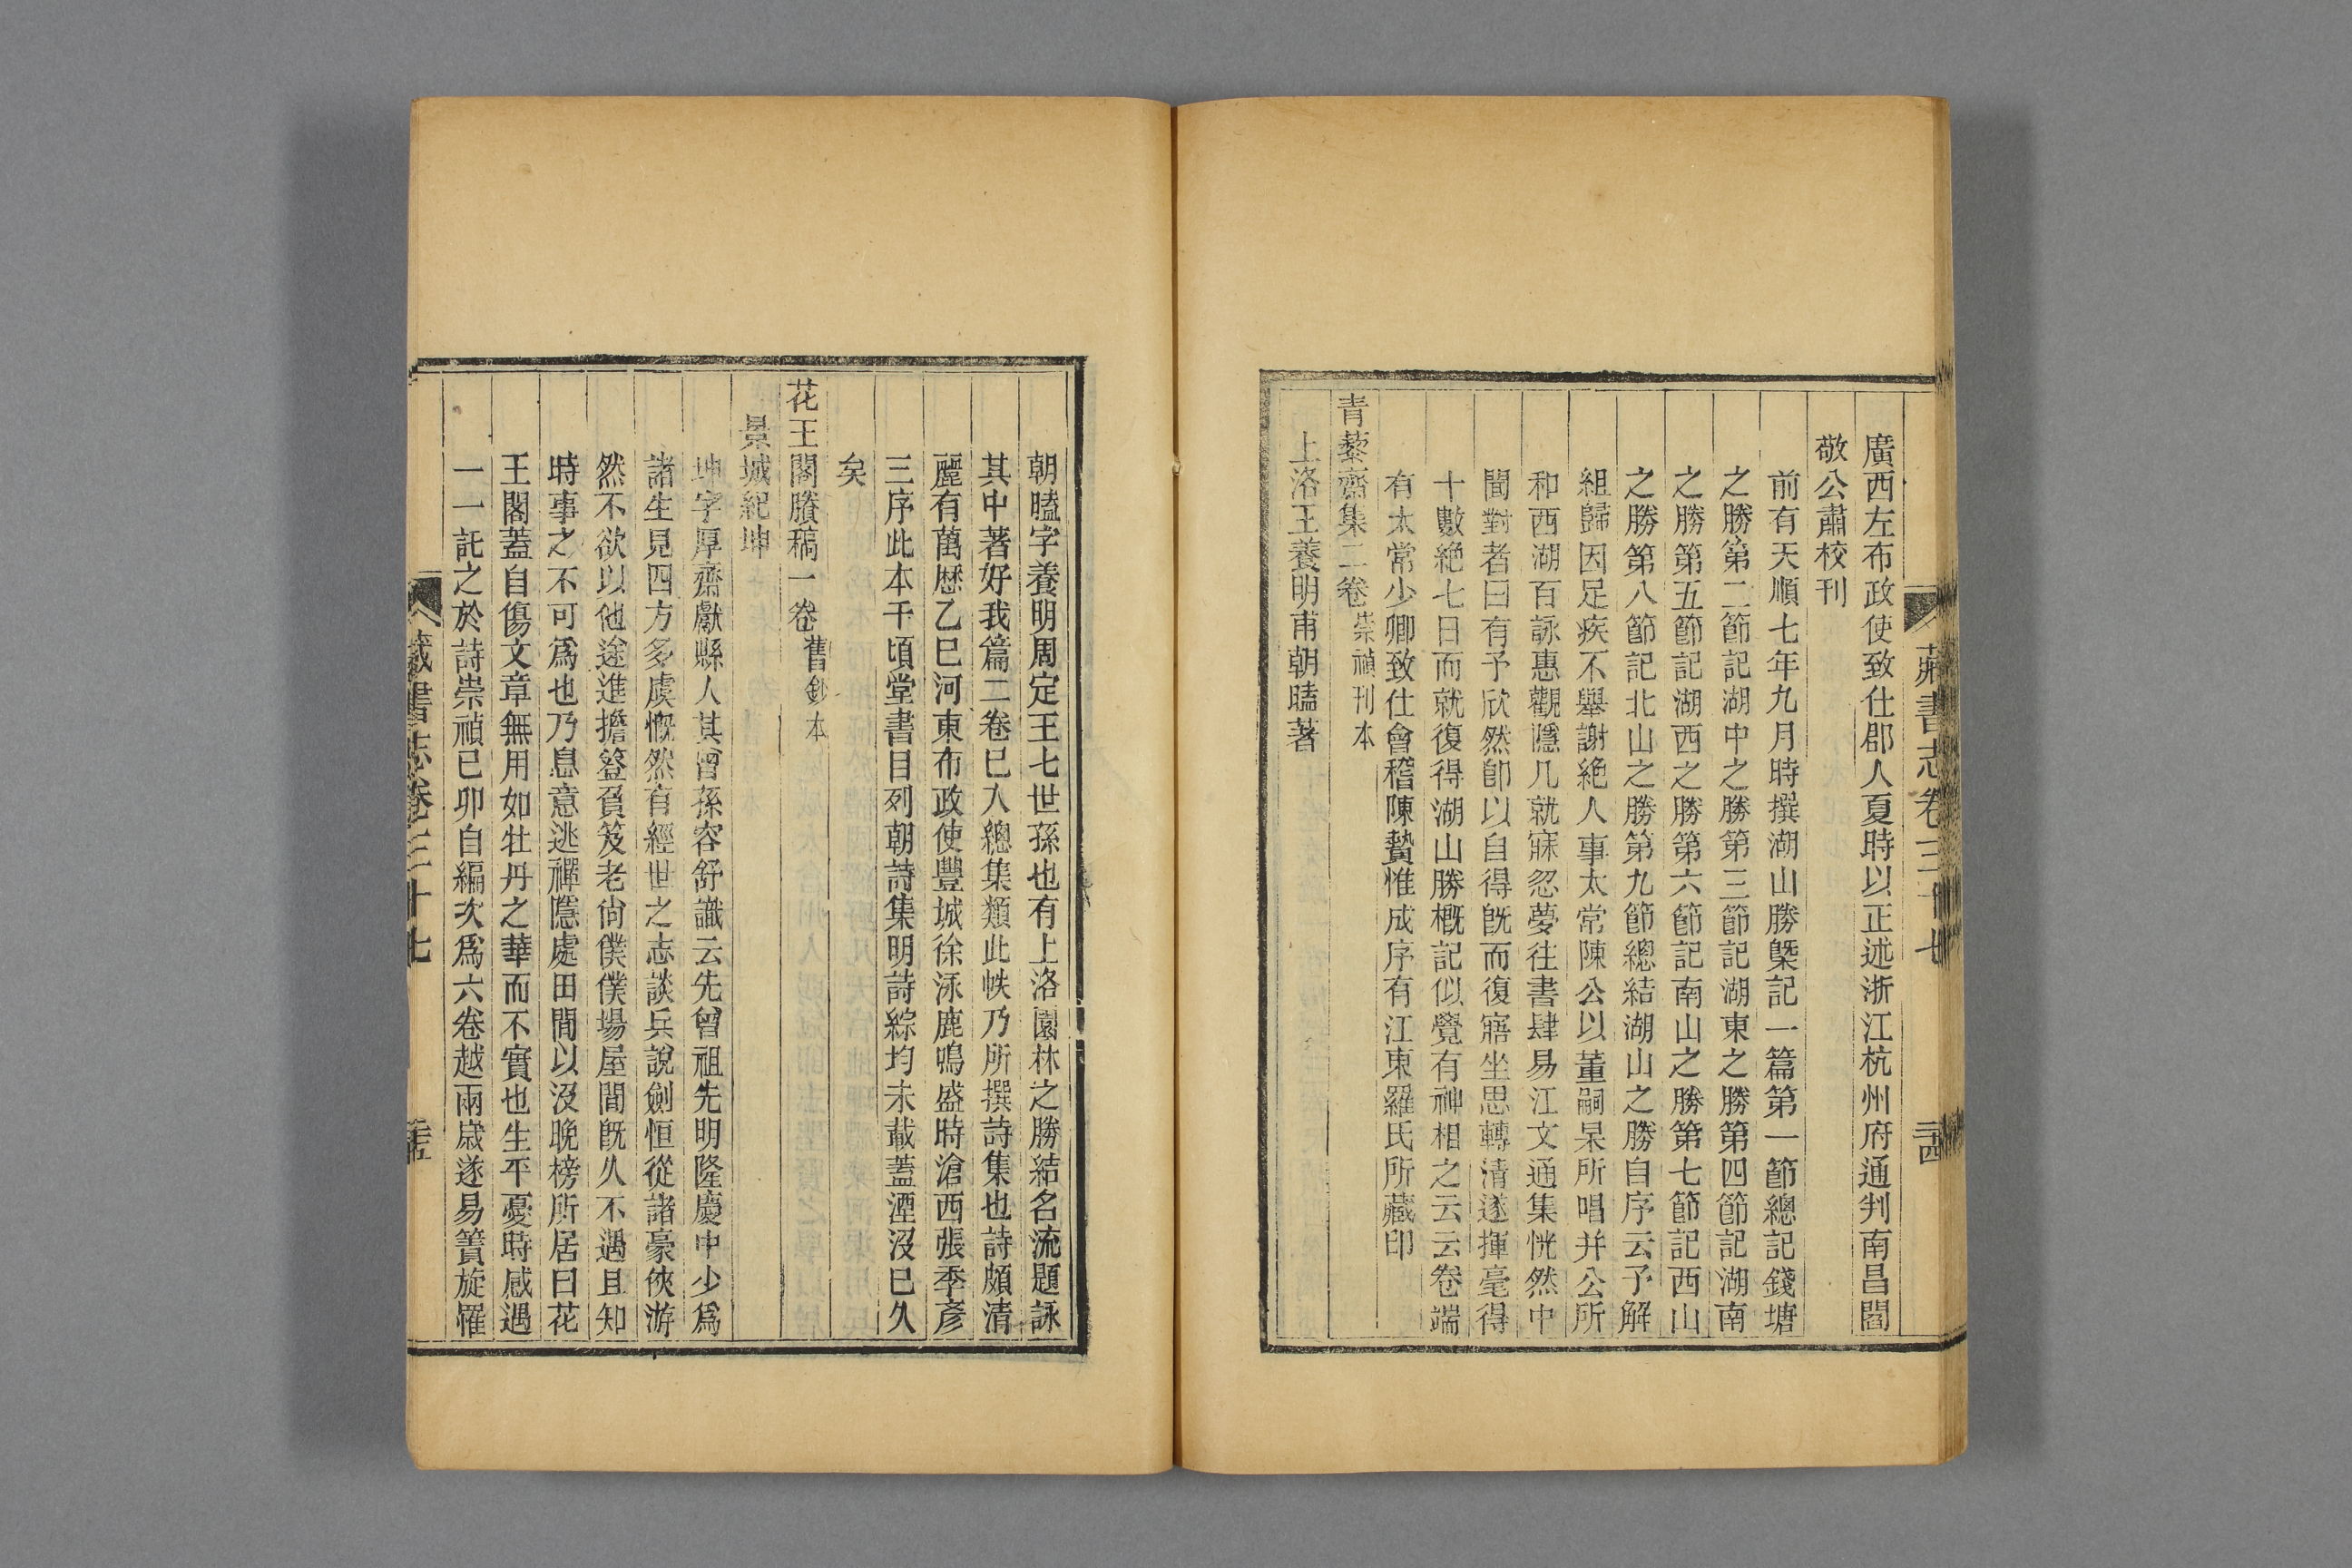 藏書志卷三十七
二十四
廣西左布政使致仕郡人夏時以正述浙江杭州府通判南昌閻
敬公肅校刊
前有天順七年九月時撰湖山勝槩記一篇第一節總記錢塘
之勝第二節記湖中之勝第三節記湖東之勝第四節記湖南
之勝第五節記湖西之勝第六節記南山之勝第七節記西山
之勝第八節記北山之勝第九節總結湖山之勝自序云予解
組歸因足疾不舉謝絕人事太常陳公以董嗣杲所唱并公所
和西湖百詠惠觀隱几就寐忽夢往書肆易江文通集恍然中
聞對者曰有予欣然卽以自得旣而復寤坐思轉清遂揮毫得
十數絕七日而就復得湖山勝概記似覺有神相之云云卷端
有太常少卿致仕會稽陳贄惟成序有江東羅氏所藏印
青藜齋集二卷 崇禎刊本
上洛王養明甫朝𪾢著
朝𪾢字養明周定王七世孫也有上洛園林之勝結名流題詠
其中著好我篇二卷巳入總集類此帙乃所撰詩集也詩頗清
麗有萬歴乙巳河東布政使豐城徐泳鹿鳴盛時滄西張季彥
三序此本千頃堂書目列朝詩集明詩綜均未載蓋湮沒巳久
矣
花王閣賸稿一卷 舊鈔本
景城紀坤
坤字厚齋獻縣人其曾孫容舒識云先曾祖先明隆慶中少爲
諸生見四方多虞慨然有經世之志談兵說劍恒從諸豪俠游
然不欲以他途進擔簦負笈老尙僕僕場屋間旣久不遇且知
時事之不可爲也乃息意逃禪隱處田間以沒晚榜所居曰花
王閣蓋自傷文章無用如牡丹之華而不實也生平憂時感遇
一一託之於詩崇禎己卯自編次爲六卷越兩歲遂易簀旋罹
藏書志卷三十七
二十五